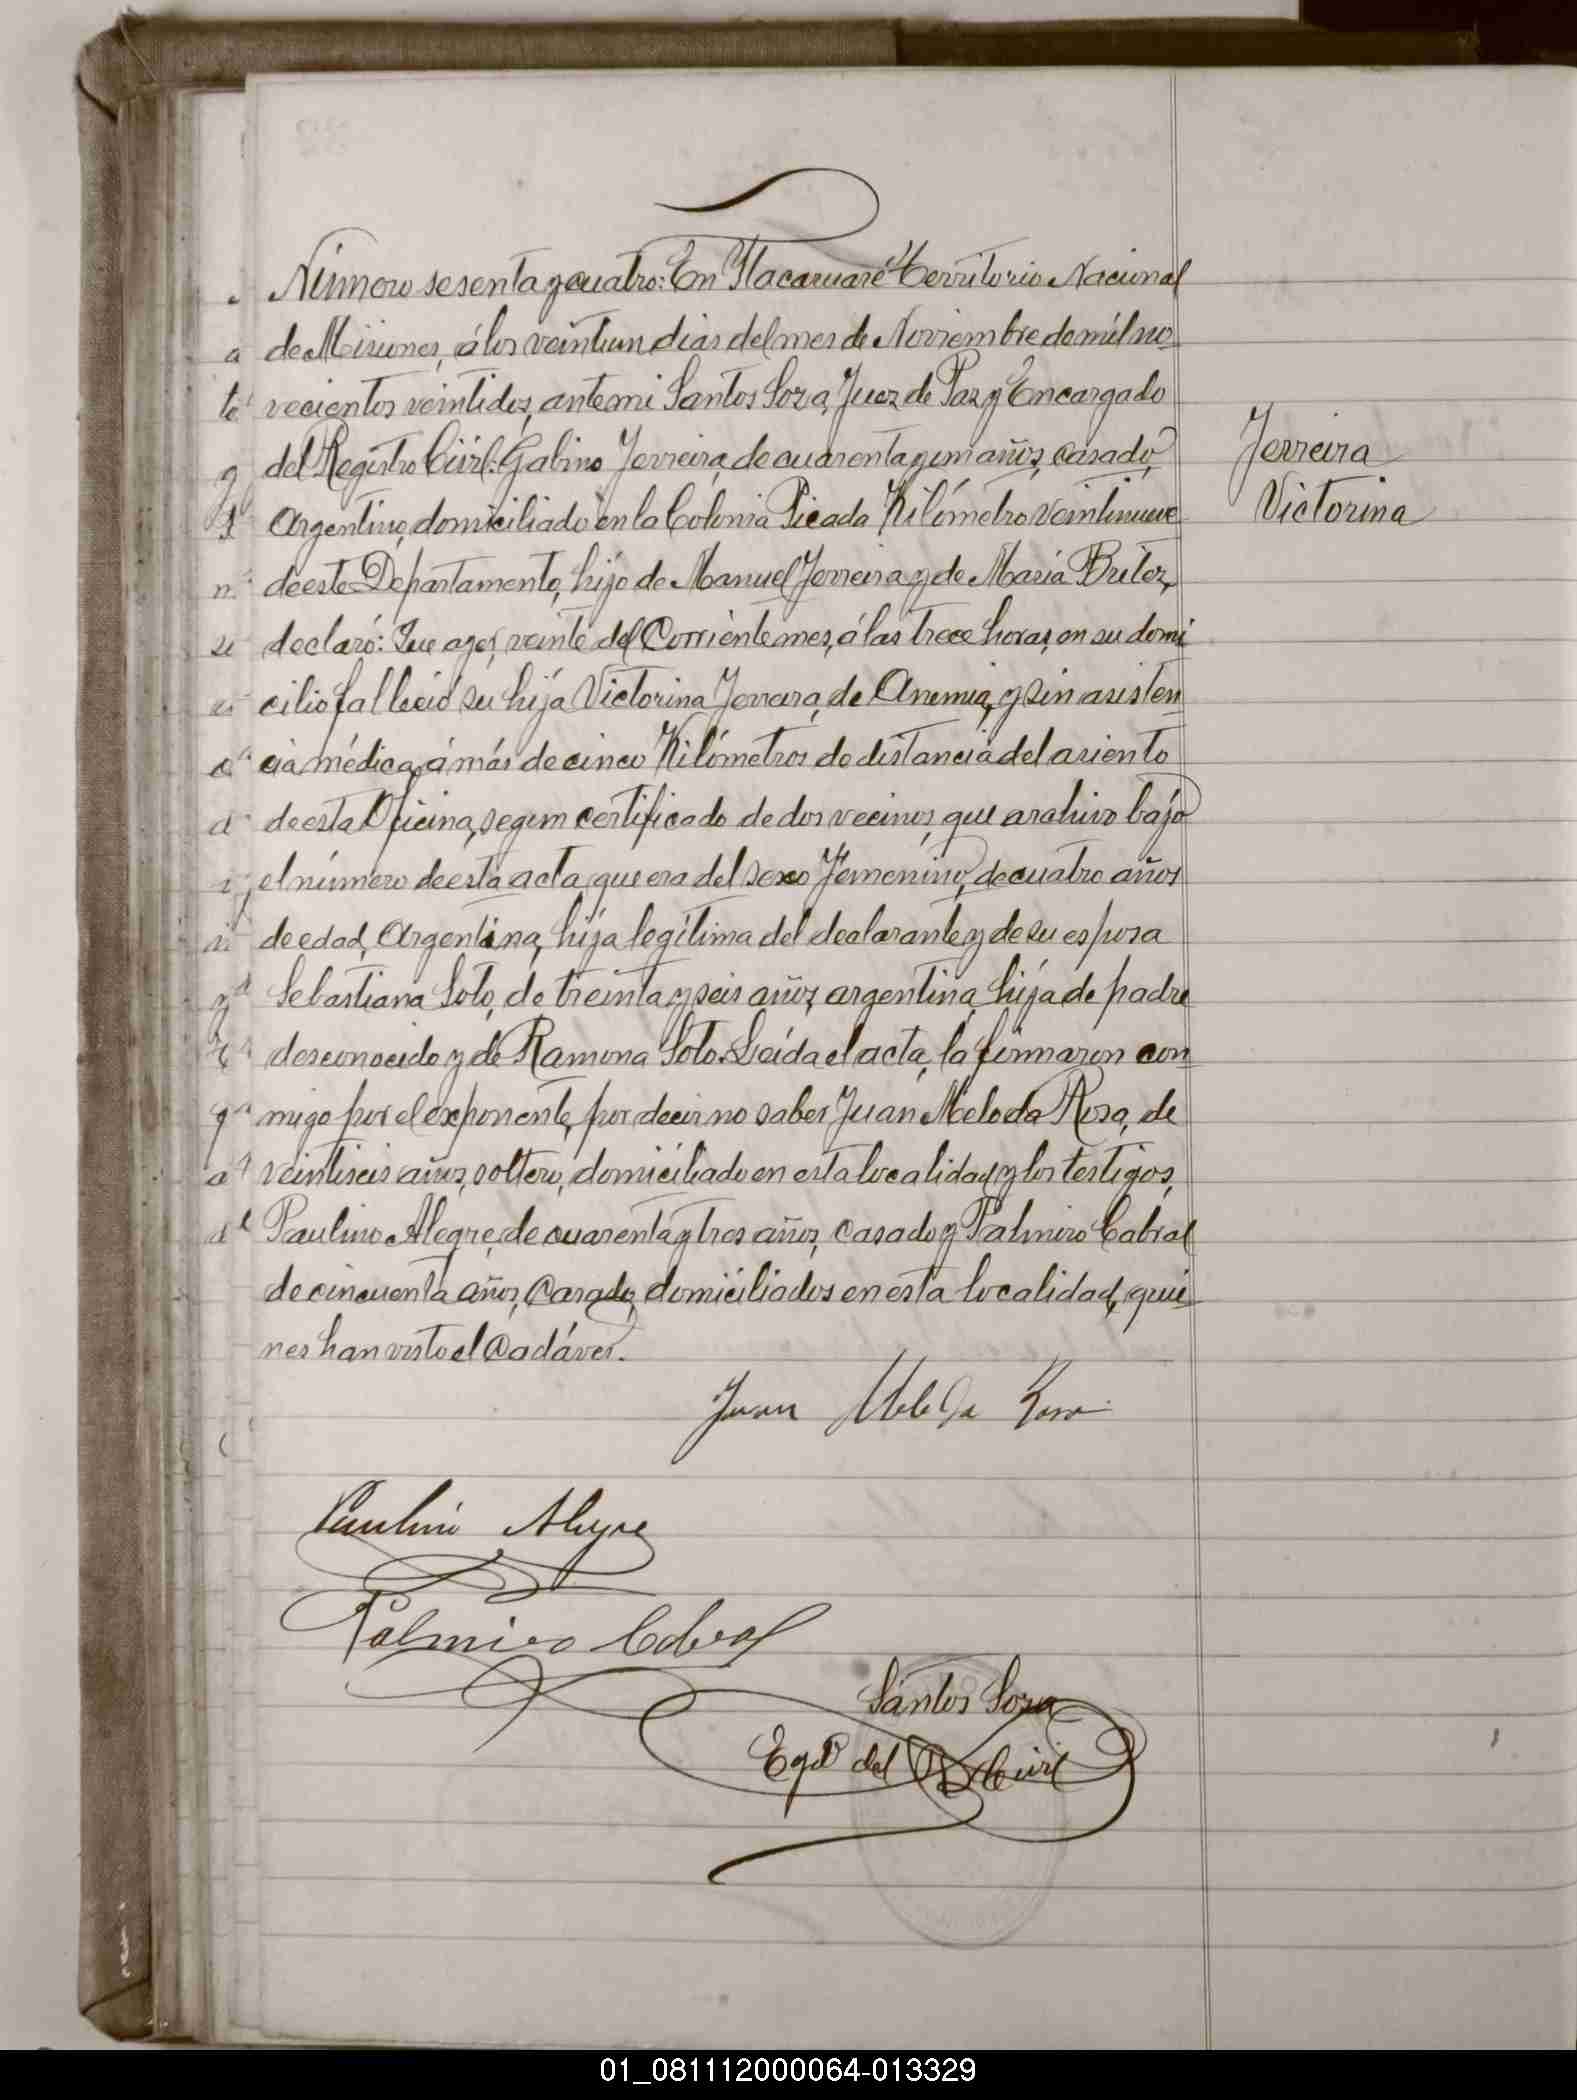 Número sesenta y cuatro: En Itacaruaré Territorio Nacional
de Misiones, á los veintiun dias del mes de Noviembre de mil no-
vecientos veintidos, ante mi Santos Soza, Juez de Paz y Encargado
del Registro Civil: Gabino Ferreira, de cuarenta y un años, casado,
Argentino, domiciliado en la Colonia Picada Kilómetro veintinueve
de este Departamento, hijo de Manuel Ferreira y de María Britez,
declaró: Que ayer, veinte del Corriente mes, á las trece horas, en su domi
cilio falleció su hija Victorina Ferrara, de Anemia, y sin asisten-
cia médica, á más de cinco Kilómetros de distancia del asiento
de esta Oficina, segun certificado de dos vecinos, que archivo bajo
el número de esta acta, que era del sexo Femenino, de cuatro años
de edad, Argentina, hija legítima del declarante y de su esposa
Sebastiana Soto, de treinta y seis años, argentina, hija de padre
desconocido y de Ramona Soto. Leída el acta, la firmaron con-
migo por el exponente, por decir no saber Juan Melo da Rosa, de
veintiseis años, soltero, domiciliado en esta localidad, y los testigos,
Paulino Alegre, de cuarenta y tres años, casado y Palmiro Cabral
de cincuenta años, Casado, domiciliados en esta localidad, quie-
nes han visto el Cadáver.
Ferreira
Victorina
Juan Melo Da Rosa
Paulino Alegre
Palmiro Cabral
Santos Soza
Egdo del R. Civil
01_081112000064-013329